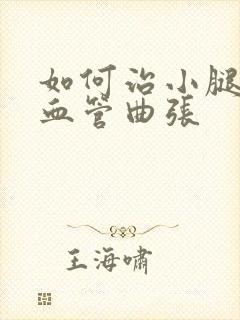 如何治小腿
血管曲張
王海啸